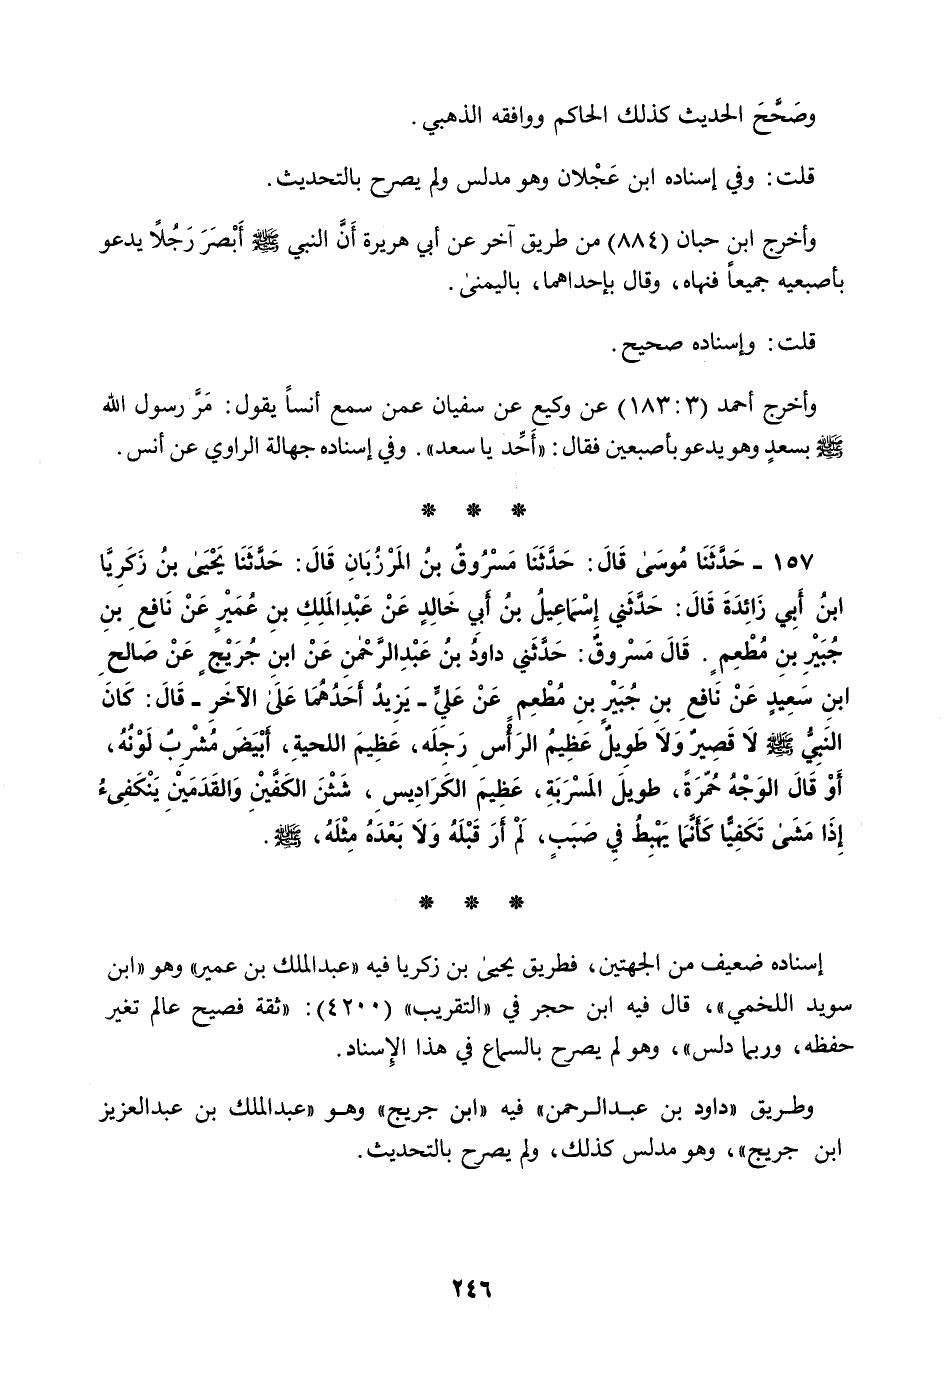 وصَحَّحَ الحديث كذلك الحاكم ووافقه الذهبي .
قلت : وفي إسناده ابن عَجْلان وهو مدلس ولم يصرح بالتحديث .
وأخرج ابن حبان (٨٨٤) من طريق آخر عن أبي هريرة أَنَّ النبي ﷺ أَبْصَرَ رَجُلاً يدعو
بأصبعيه جميعاً فنهاه ، وقال بإحداهما ، باليمنىٰ .
قلت : وإسناده صحيح .
وأخرج أحمد (٣ : ١٨٣) عن وكيع عن سفيان عمن سمع أنساً يقول : مَرَّ رسول الله
ﷺ بسعدٍ وهو يدعو بأصبعين فقال : «أَحِّد يا سعد» . وفي إسناده جهالة الراوي عن أنس .
* * *
١٥٧ ـ حَدَّثَنَا مُوسَىٰ قَالَ : حَدَّثَنَا مَسْرُوقُ بنُ المَرْزُبَانِ قَالَ : حَدَّثَنَا يَحْيَىٰ بنُ زَكَرِيَّا
ابنُ أَبِي زَائِدَةَ قَالَ : حَدَّثَنِي إِسْمَاعِيلُ بنُ أَبي خَالِدٍ عَنْ عَبْدِالمَلِكِ بنِ عُمَيْرٍ عَنْ نَافع ِ بنِ
جُبَيْرِ بنِ مُطْعِم ٍ . قَالَ مَسْروقٌ : حَدَّثَنِي داودُ بنُ عَبْدِالرَّحْمٰنِ عَنْ ابنِ جُرَيْج ٍ عَنْ صَالح ِ
ابنِ سَعِيدٍ عَنْ نَافع ِ بنِ جُبَيْرِ بنِ مُطْعِم ٍ عَنْ عَليٍّ ـ يَزِيدُ أَحَدُهُمَا عَلَىٰ الآخَرِ ـ قَالَ : كَانَ
النَبِيُّ ﷺ لَا قَصِيرٌ وَلَا طَويلٌ عَظِيمُ الرَأْس ِ رَجِلَه ، عَظِيمَ اللحيةِ ، أَبْيَضَ مُشْرِبٌ لَوْنُهُ ،
أَوْ قَالَ الوَجْهُ حُمْرَةً ، طويلَ المَسْرَبَةِ ، عَظِيمَ الكَرَادِيس ِ ، شَثْنَ الكَفَّيْنِ وَالقَدَمَيْنِ يَنْكَفِىءُ
إِذَا مَشَىٰ تَكَفِيًّا كَأَنَّمَا يَهْبِطُ فِي صَبَبٍ ، لَمْ أَرَ قَبْلَهُ وَلَا بَعْدَهُ مِثْلَهُ ، ﷺ .
* * *
إسناده ضعيف من الجهتين ، فطريق يحيىٰ بن زكريا فيه «عبدالملك بن عمير» وهو «ابن
سويد اللخمي» ، قال فيه ابن حجر في «التقريب» (٤٢٠٠) : «ثقة فصيح عالم تغير
حفظه ، وربما دلس» ، وهو لم يصرح بالسماع في هذا الإسناد .
وطريق «داود بن عبدالرحمن» فيه «ابن جريج» وهو «عبدالملك بن عبدالعزيز
ابن جريج» ، وهو مدلس كذلك ، ولم يصرح بالتحديث .
٢٤٦